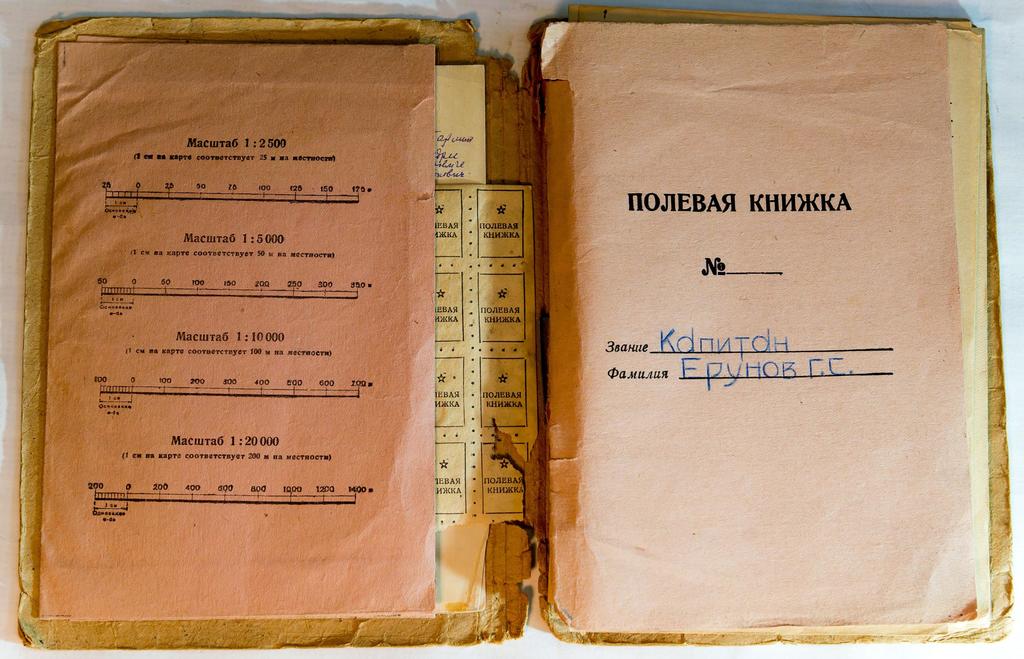 Масштаб 1 : 2 500
(1 см на карте соответствует 25 м на местности)
25 0 25 50 75 100 125 150 175 м
1 см
Основание
м-ба
Масштаб 1 : 5 000
(1 см на карте соответствует 50 м на местности)
50 0 50 100 150 200 250 300 350 м
1 см
Основание
м-ба
Масштаб 1 : 10 000
(1 см на карте соответствует 100 м на местности)
100 0 100 200 300 400 500 600 700 м
1 см
Основание
м-ба
Масштаб 1 : 20 000
(1 см на карте соответствует 200 м на местности)
200 0 200 400 600 800 1000 1200 1400 м
1 см
Основание
м-ба
ПОЛЕВАЯ
КНИЖКА
ПОЛЕВАЯ
КНИЖКА
ПОЛЕВАЯ
КНИЖКА
ПОЛЕВАЯ
КНИЖКА
ПОЛЕВАЯ КНИЖКА
№
Звание Капитан
Фамилия Ерунов Г.С.